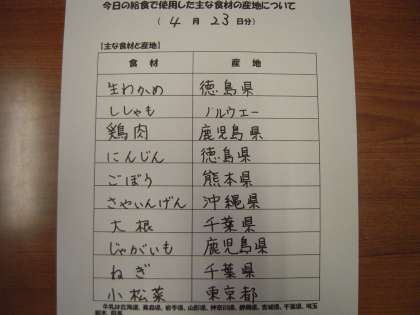 今日の給食で使用した主な食材の産地について
( 4 月 23 日分)
【主な食材と産地】
食材 産地
生わかめ 徳島県
ししゃも ノルウェー
鶏肉 鹿児島県
にんじん 徳島県
ごぼう 熊本県
さやいんげん 沖縄県
大根 千葉県
じゃがいも 鹿児島県
ねぎ 千葉県
小松菜 東京都
牛乳は北海道、青森県、岩手県、山形県、神奈川県、静岡県、宮城県、千葉県、埼玉